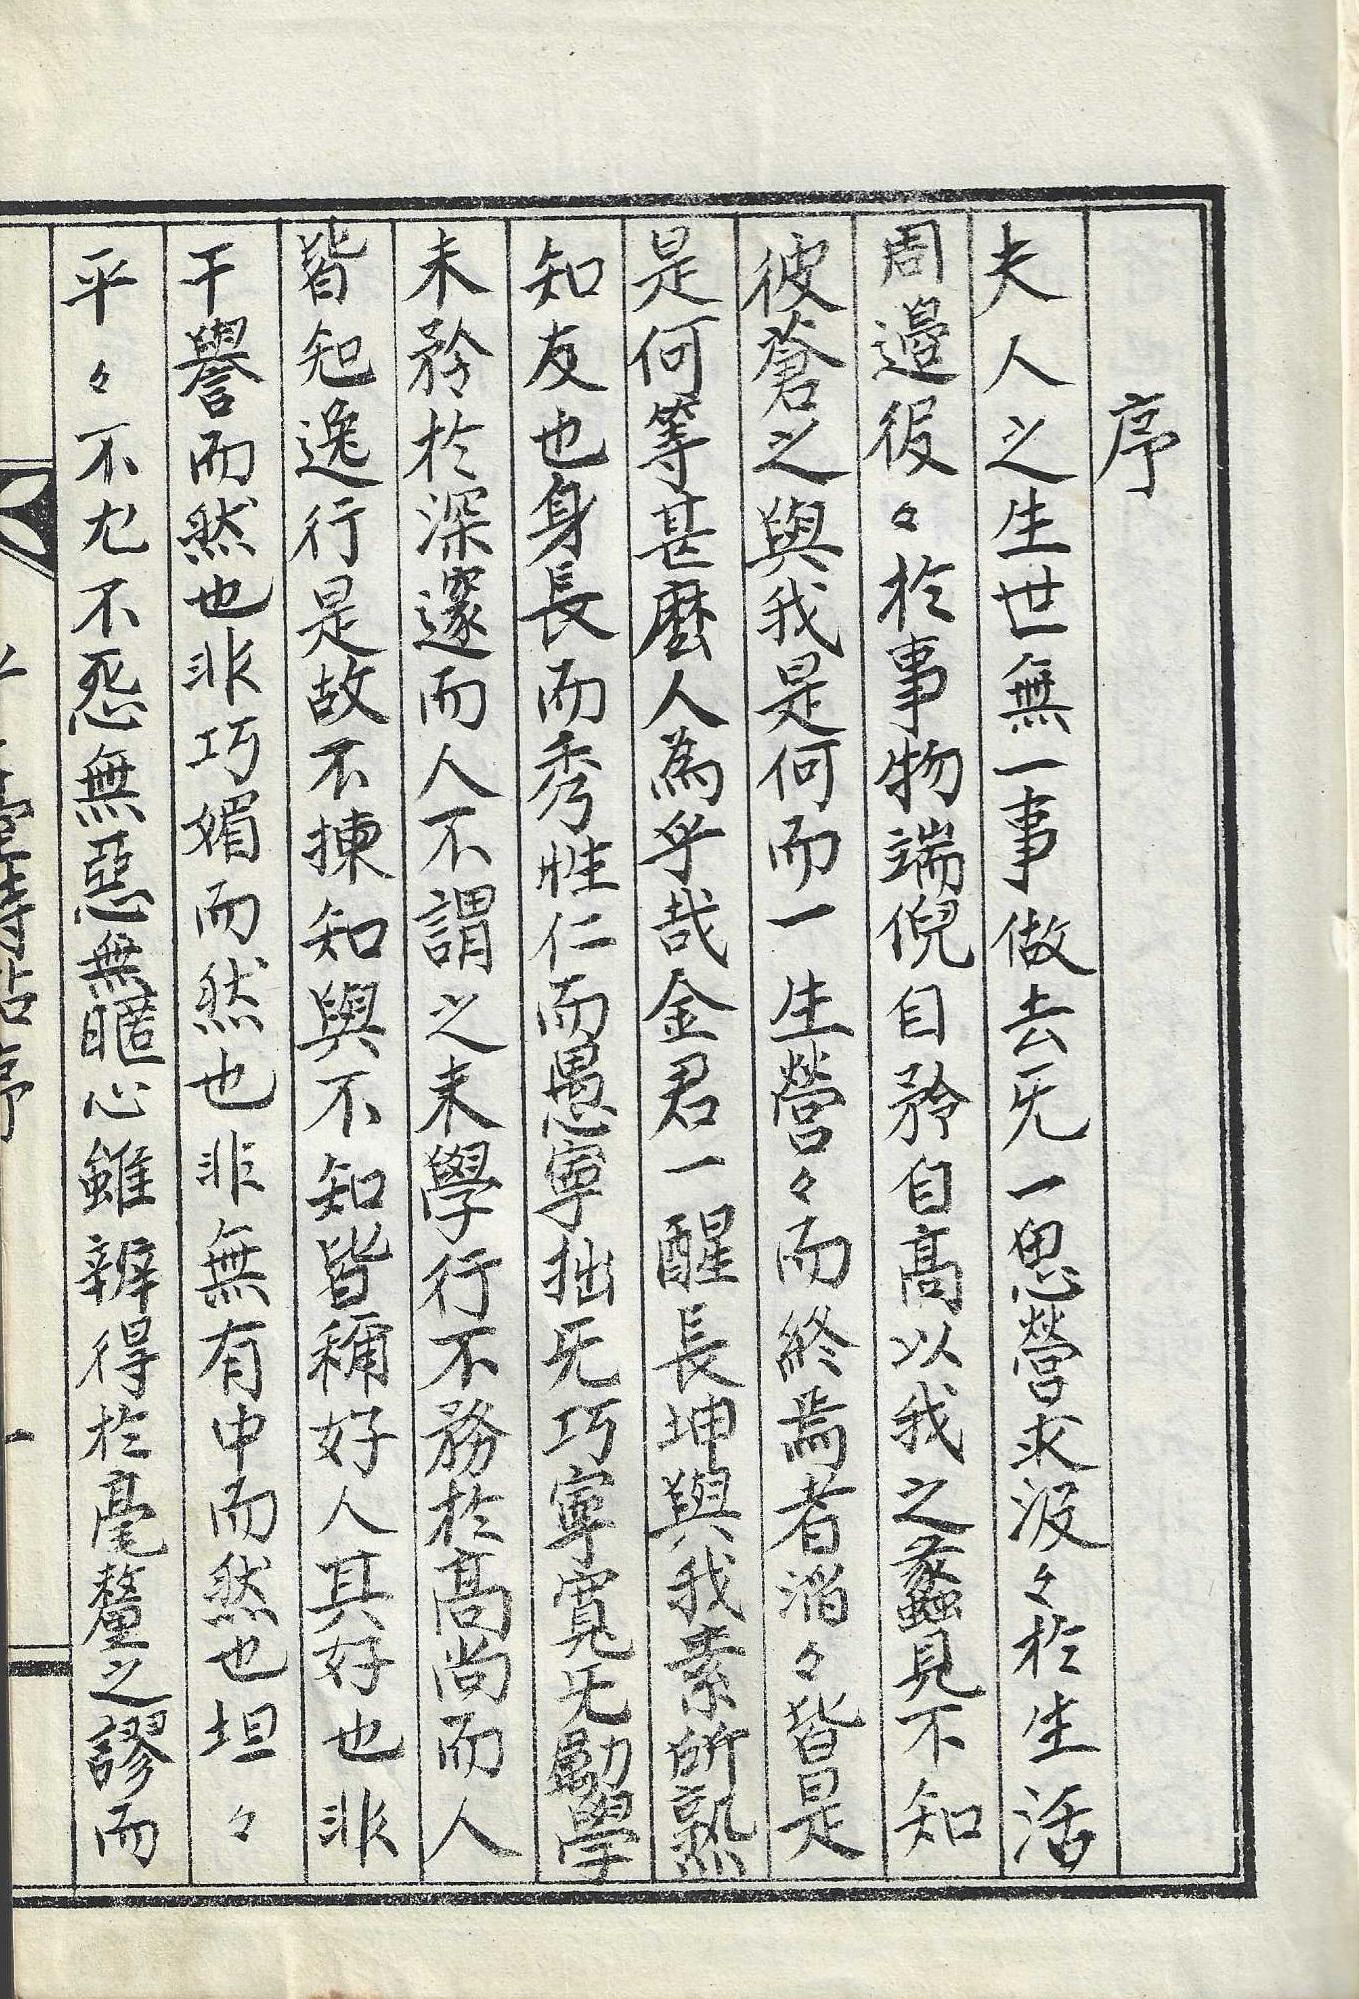 序
夫人之生世無一事做去旡一思營求汲々於生活
周邉役々於事物端倪自矜自高以我之蠡見不知
彼蒼之與我是何而一生營々而終焉者滔々皆是
是何等甚麼人為乎哉金君一醒長坤與我素所熟
知友也身長而秀性仁而愚寧拙旡巧寧寬旡勵學
未矜於深邃而人不謂之未學行不務於高尚而人
皆知逸行是故不揀知與不知皆稱好人其好也非
干譽而然也非巧媚而然也非無有中而然也坦々
平々不尤不怨無惡無慝心雖辨得於毫釐之謬而
序
一